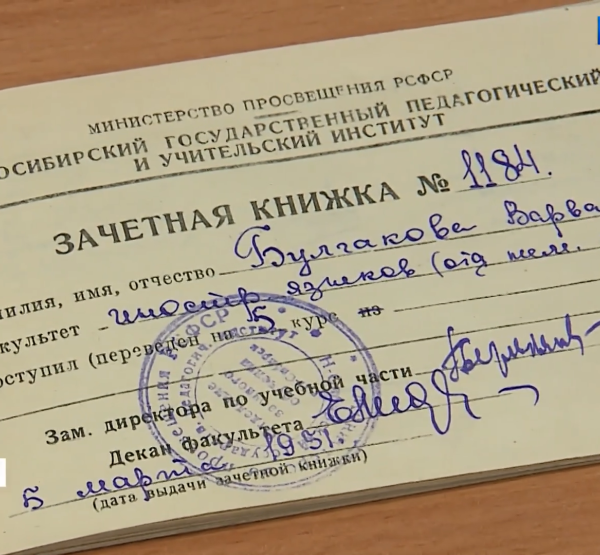 МИНИСТЕРСТВО ПРОСВЕЩЕНИЯ РСФСР
ОСИБИРСКИЙ ГОСУДАРСТВЕННЫЙ ПЕДАГОГИЧЕСКИЙ
И УЧИТЕЛЬСКИЙ ИНСТИТУТ
ЗАЧЕТНАЯ КНИЖКА № 1184.
милия, имя, отчество Булгакова Варва
культет иностр языков (отд
оступил (переведен на 5 курс из
Зам. директора по учебной части
Декан факультета
5 марта 1951г.
(дата выдачи зачетной книжки)